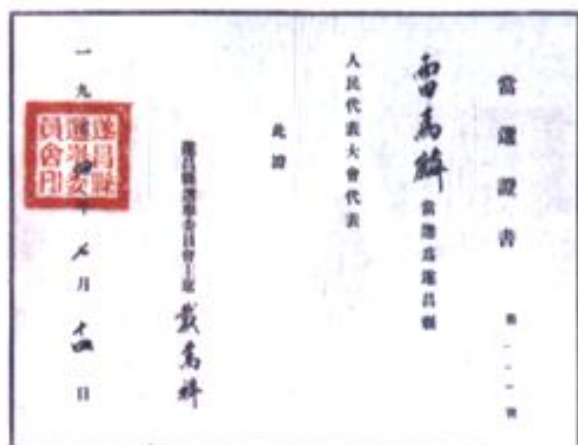 當選證書
第一一一號
雷馬麟當選為遂昌縣
人民代表大會代表
此證
遂昌縣選舉委員會主席
一九五四年七月十四日
遂昌縣選舉委員會印